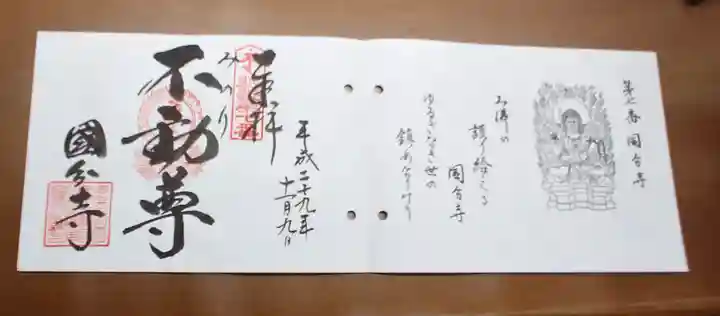 第七番 国分寺
み佛の
護り給える
国分寺
ゆるぎなき世の
鎮めなりけり
奉拝
平成二十九年
十一月九日
みのり
不動尊
國分寺